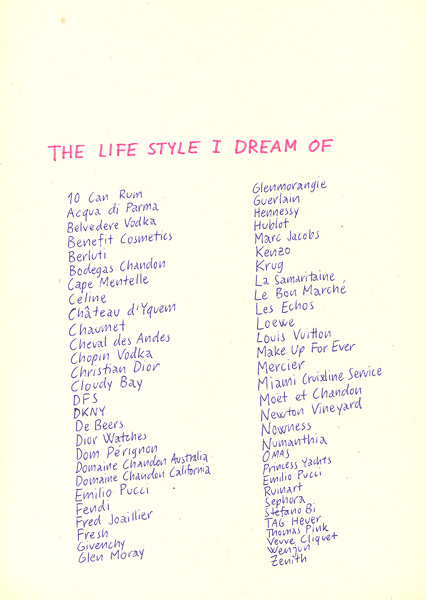 THE LIFE STYLE I DREAM OF
10 Can Rum
Acqua di Parma
Belvedere Vodka
Benefit Cosmetics
Berluti
Bodegas Chandon
Cape Mentelle
Céline
Château d'Yquem
Chaumet
Cheval des Andes
Chopin Vodka
Christian Dior
Cloudy Bay
DFS
DKNY
De Beers
Dior Watches
Dom Pérignon
Domaine Chandon Australia
Domaine Chandon California
Emilio Pucci
Fendi
Fred Joaillier
Fresh
Givenchy
Glen Moray
Glenmorangie
Guerlain
Hennessy
Hublot
Marc Jacobs
Kenzo
Krug
La Samaritaine
Le Bon Marché
Les Echos
Loewe
Louis Vuitton
Make Up For Ever
Mercier
Miami Cruiseline Service
Moët et Chandon
Newton Vineyard
Nowness
Numanthia
OMAS
Princess Yachts
Emilio Pucci
Ruinart
Sephora
Stefano Bi
TAG Heuer
Thomas Pink
Veuve Cliquet
Wenjun
Zenith